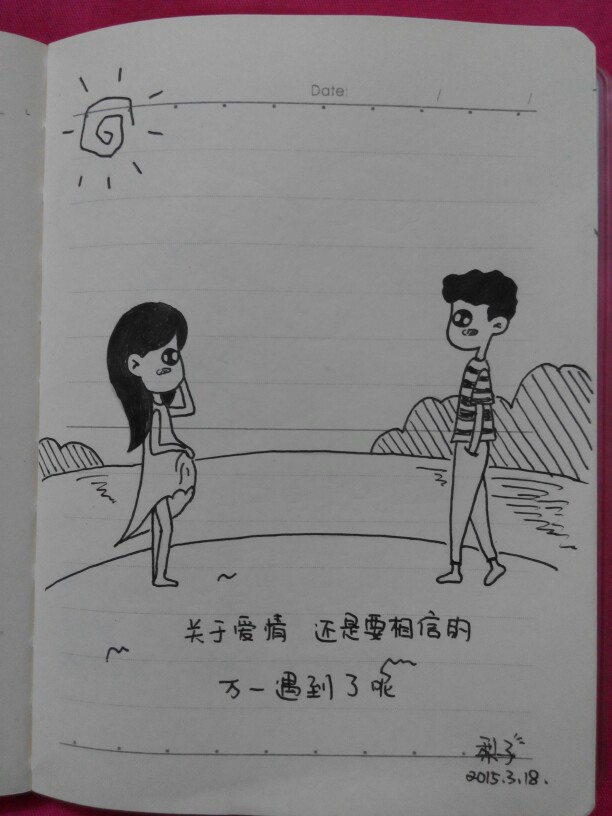 Date: / /
关于爱情 还是要相信的
万一遇到了呢
梨子
2015.3.18.